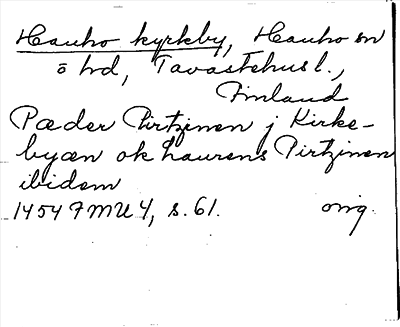 Hauho kyrkeby, Hauho sn
o hd, Tavastehus l.,
Finland
Pæder Pirtzinen j Kirke-
byæn ok Laurens Pirtzinen
ibidem
1454 FMU 4, s. 61. orig.